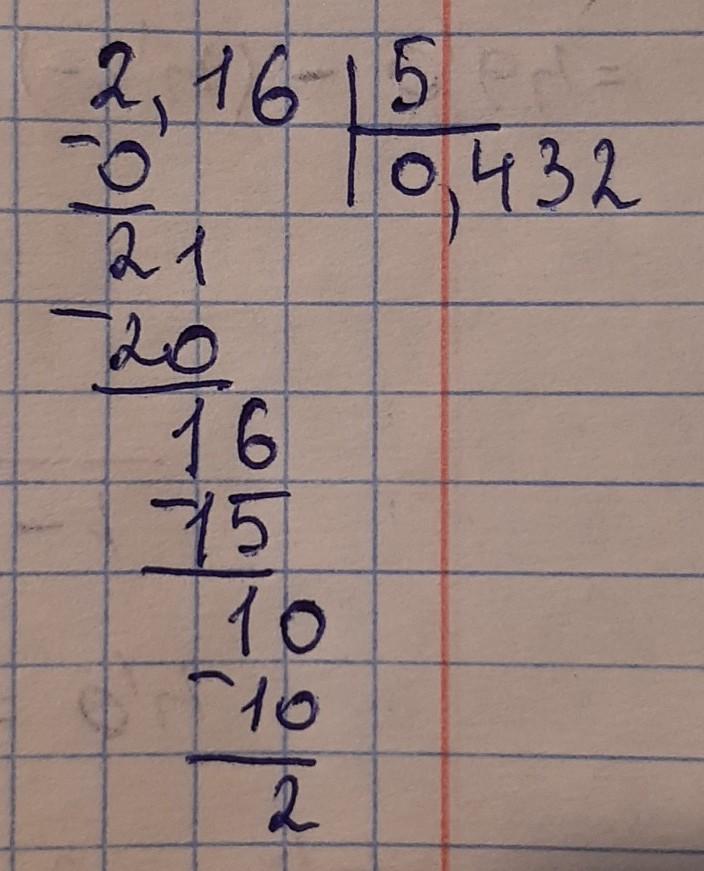 2,16 | 5
-0 | 0,432
21
-20
16
-15
10
-10
2